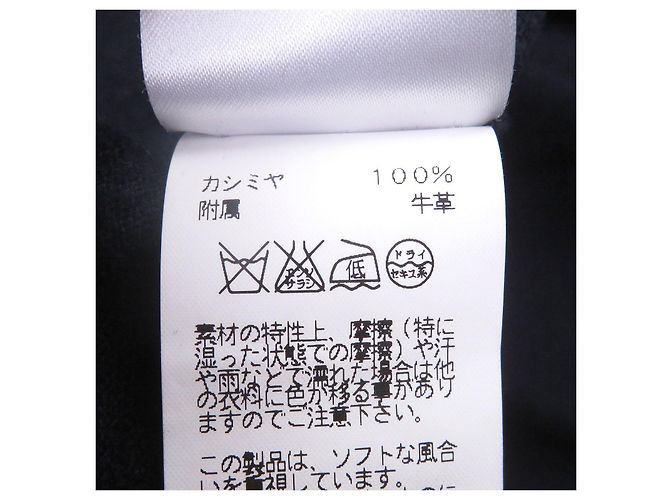 カシミヤ 100%
附属 牛革
エンソ
サラシ
低
ドライ
セキユ系
素材の特性上、摩擦（特に
湿った状態での摩擦）や汗
や雨などで濡れた場合は他
の衣料に色が移る事があり
ますのでご注意下さい。
この製品は、ソフトな風合
いを重視しています。